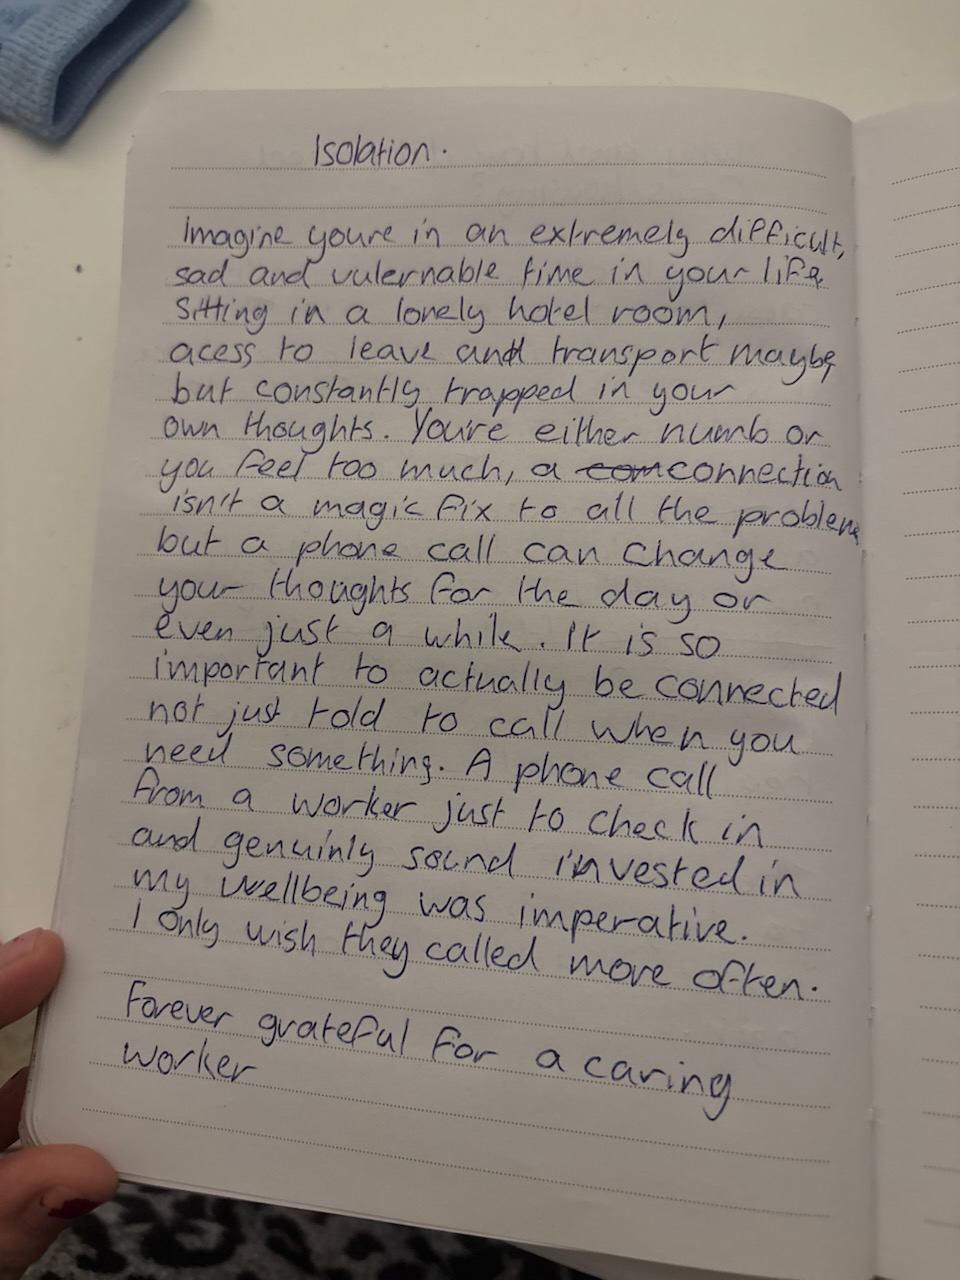 Isolation.
Imagine youre in an extremely difficult,
sad and vulernable time in your life.
Sitting in a lonely hotel room,
acess to leave and transport maybe
but constantly trapped in your
own thoughts. You're either numb or
you feel too much, a com connection
isn't a magic fix to all the problems
but a phone call can change
your thoughts for the day or
even just a while. It is so
important to actually be connected
not just told to call when you
need something. A phone call
from a worker just to check in
and genuinly sound invested in
my wellbeing was imperative.
I only wish they called more often.
Forever grateful for a caring
worker